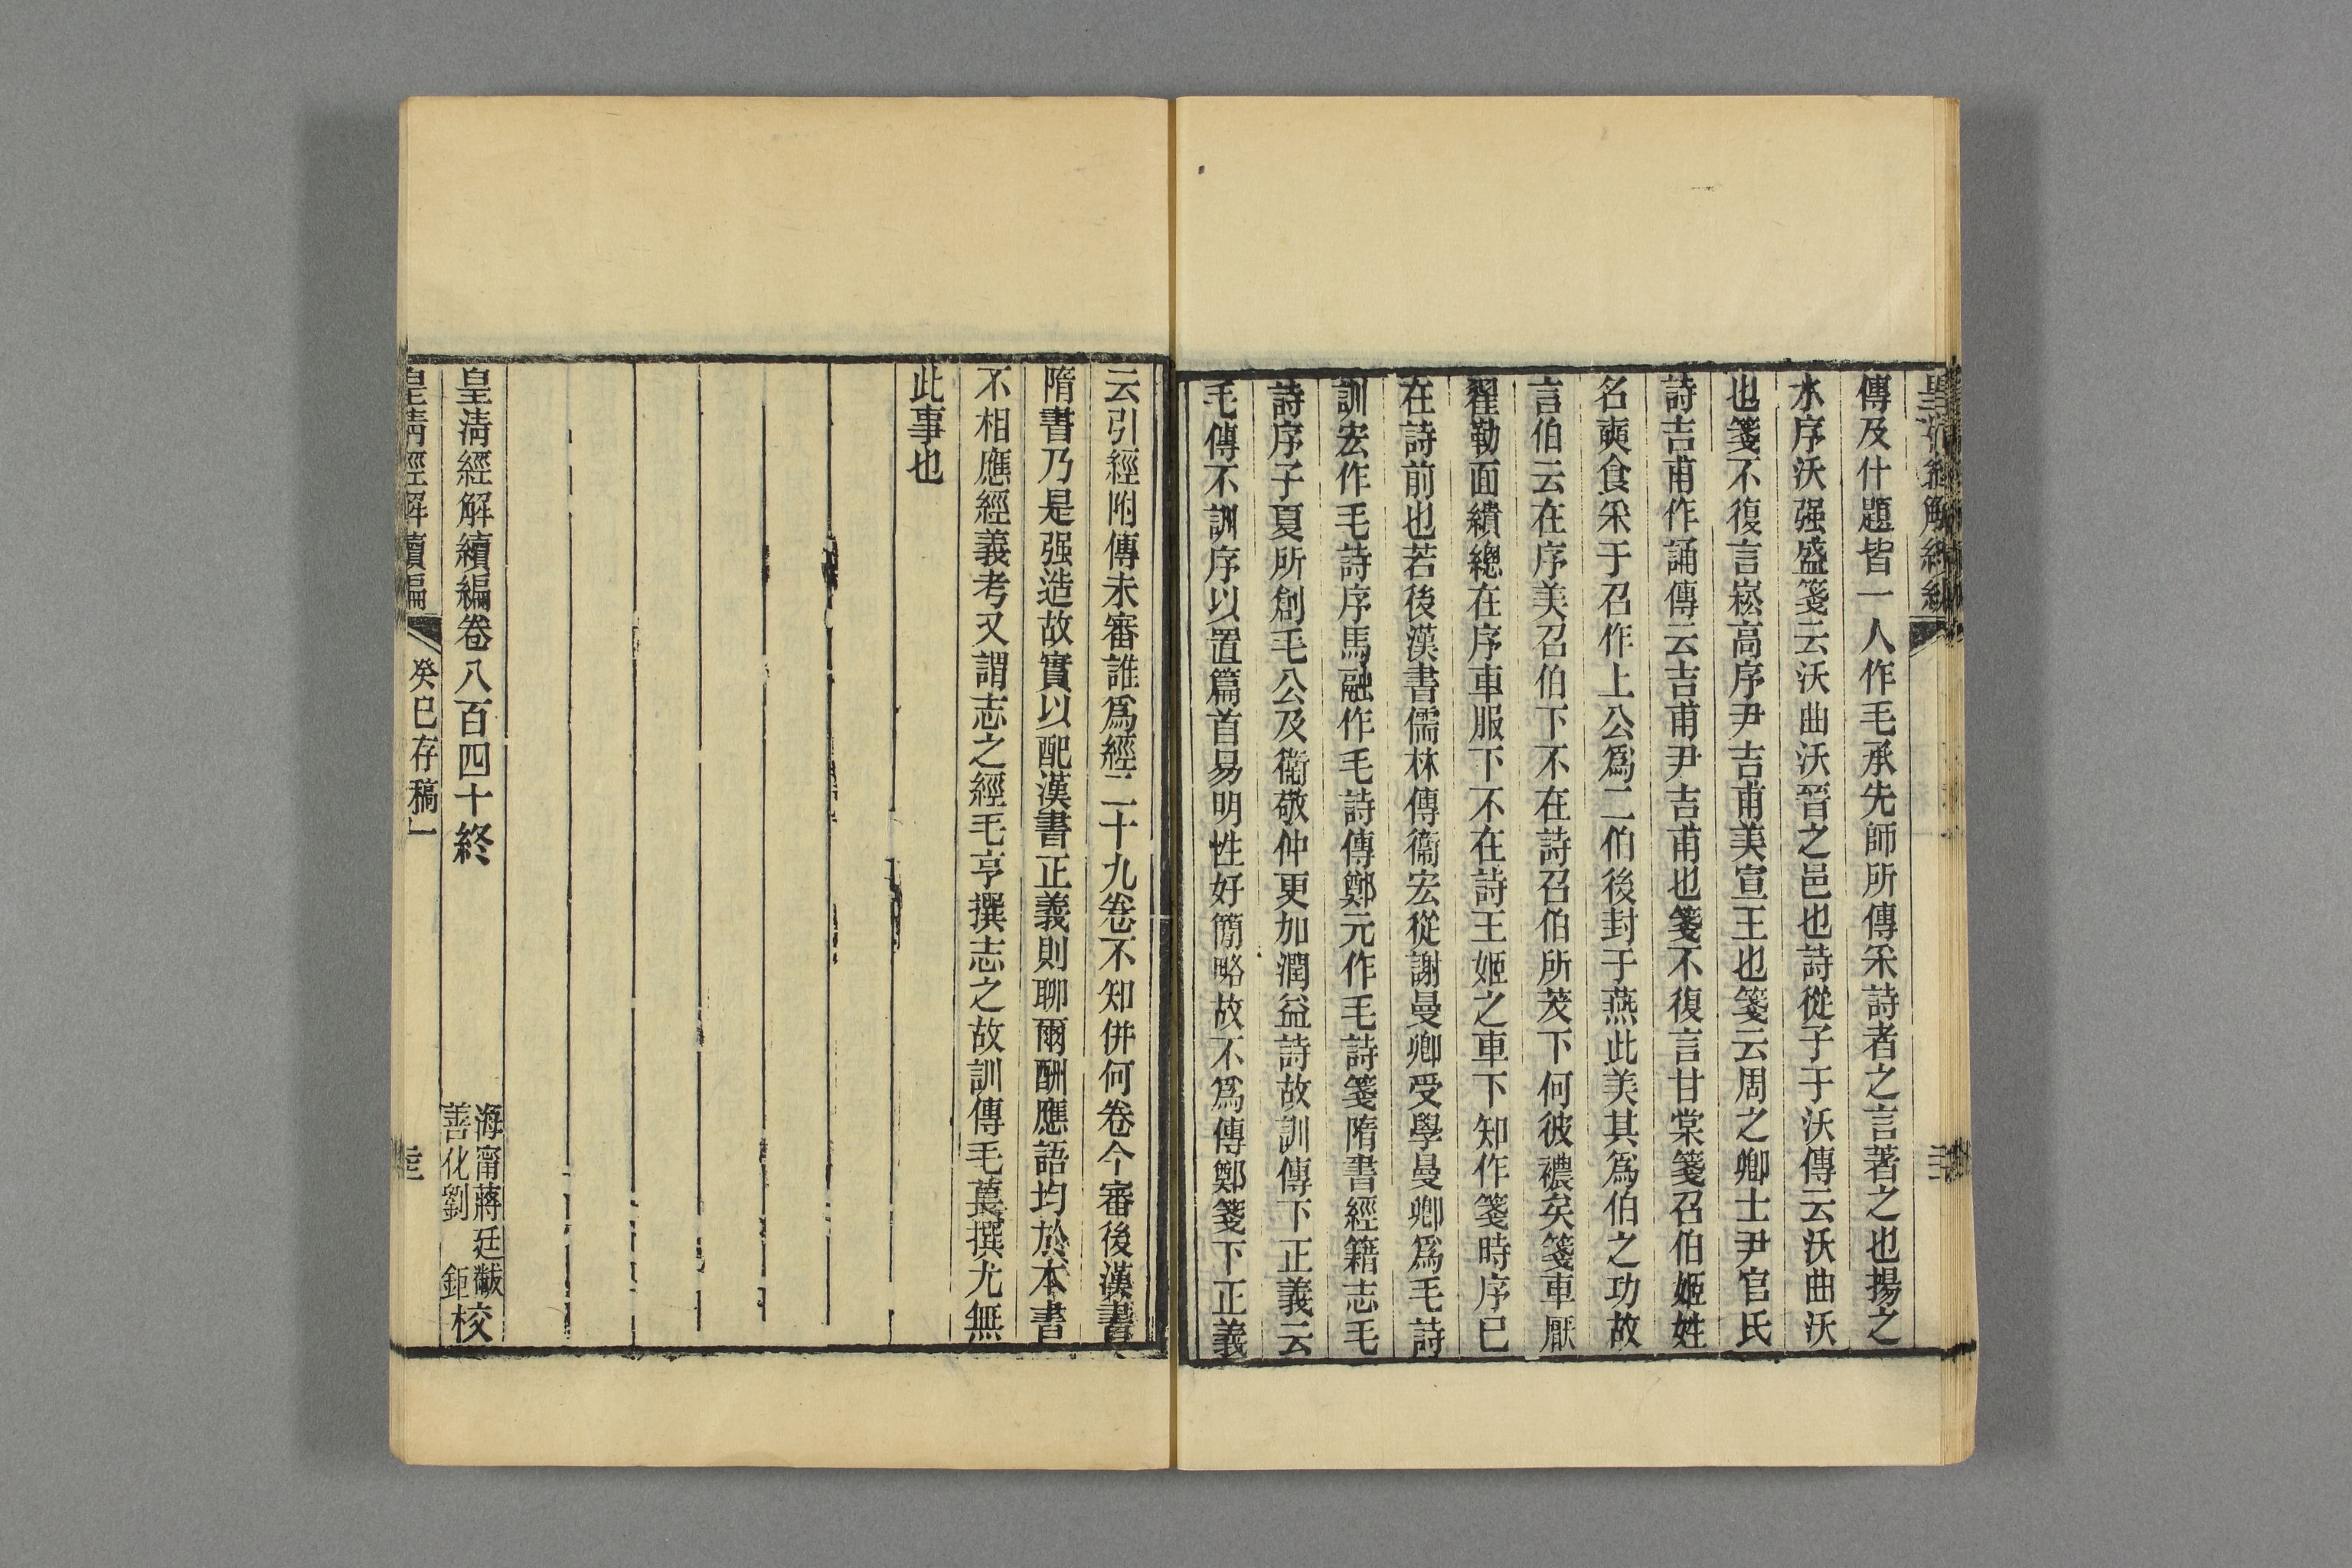 傳及什題皆一人作毛承先師所傳采詩者之言著之也揚之
水序沃强盛箋云沃曲沃晉之邑也詩從子于沃傳云沃曲沃
也箋不復言崧高序尹吉甫美宣王也箋云周之卿士尹官氏
詩吉甫作誦傳云吉甫尹吉甫也箋不復言甘棠箋召伯姬姓
名奭食采于召作上公爲二伯後封于燕此美其爲伯之功故
言伯云在序美召伯下不在詩召伯所茇下何彼襛矣箋車厭
翟勒面繢總在序車服下不在詩王姬之車下知作箋時序已
在詩前也若後漢書儒林傳衞宏從謝曼卿受學曼卿爲毛詩
訓宏作毛詩序馬融作毛詩傳鄭元作毛詩箋隋書經籍志毛
詩序子夏所創毛公及衞敬仲更加潤益詩故訓傳下正義云
毛傳不訓序以置篇首易明性好簡略故不爲傳鄭箋下正義
云引經附傳未審誰爲經二十九卷不知併何卷今審後漢書
隋書乃是强造故實以配漢書正義則聊爾酬應語均於本書
不相應經義考又謂志之經毛亨撰志之故訓傳毛萇撰尤無
此事也
皇淸經解續編卷八百四十終
海甯蔣廷黻
善化劉鉅
校
皇淸經解續編
癸巳存稿一